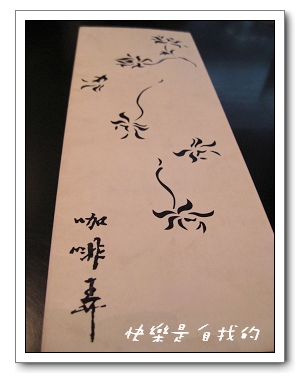 咖啡弄
快樂是自找的